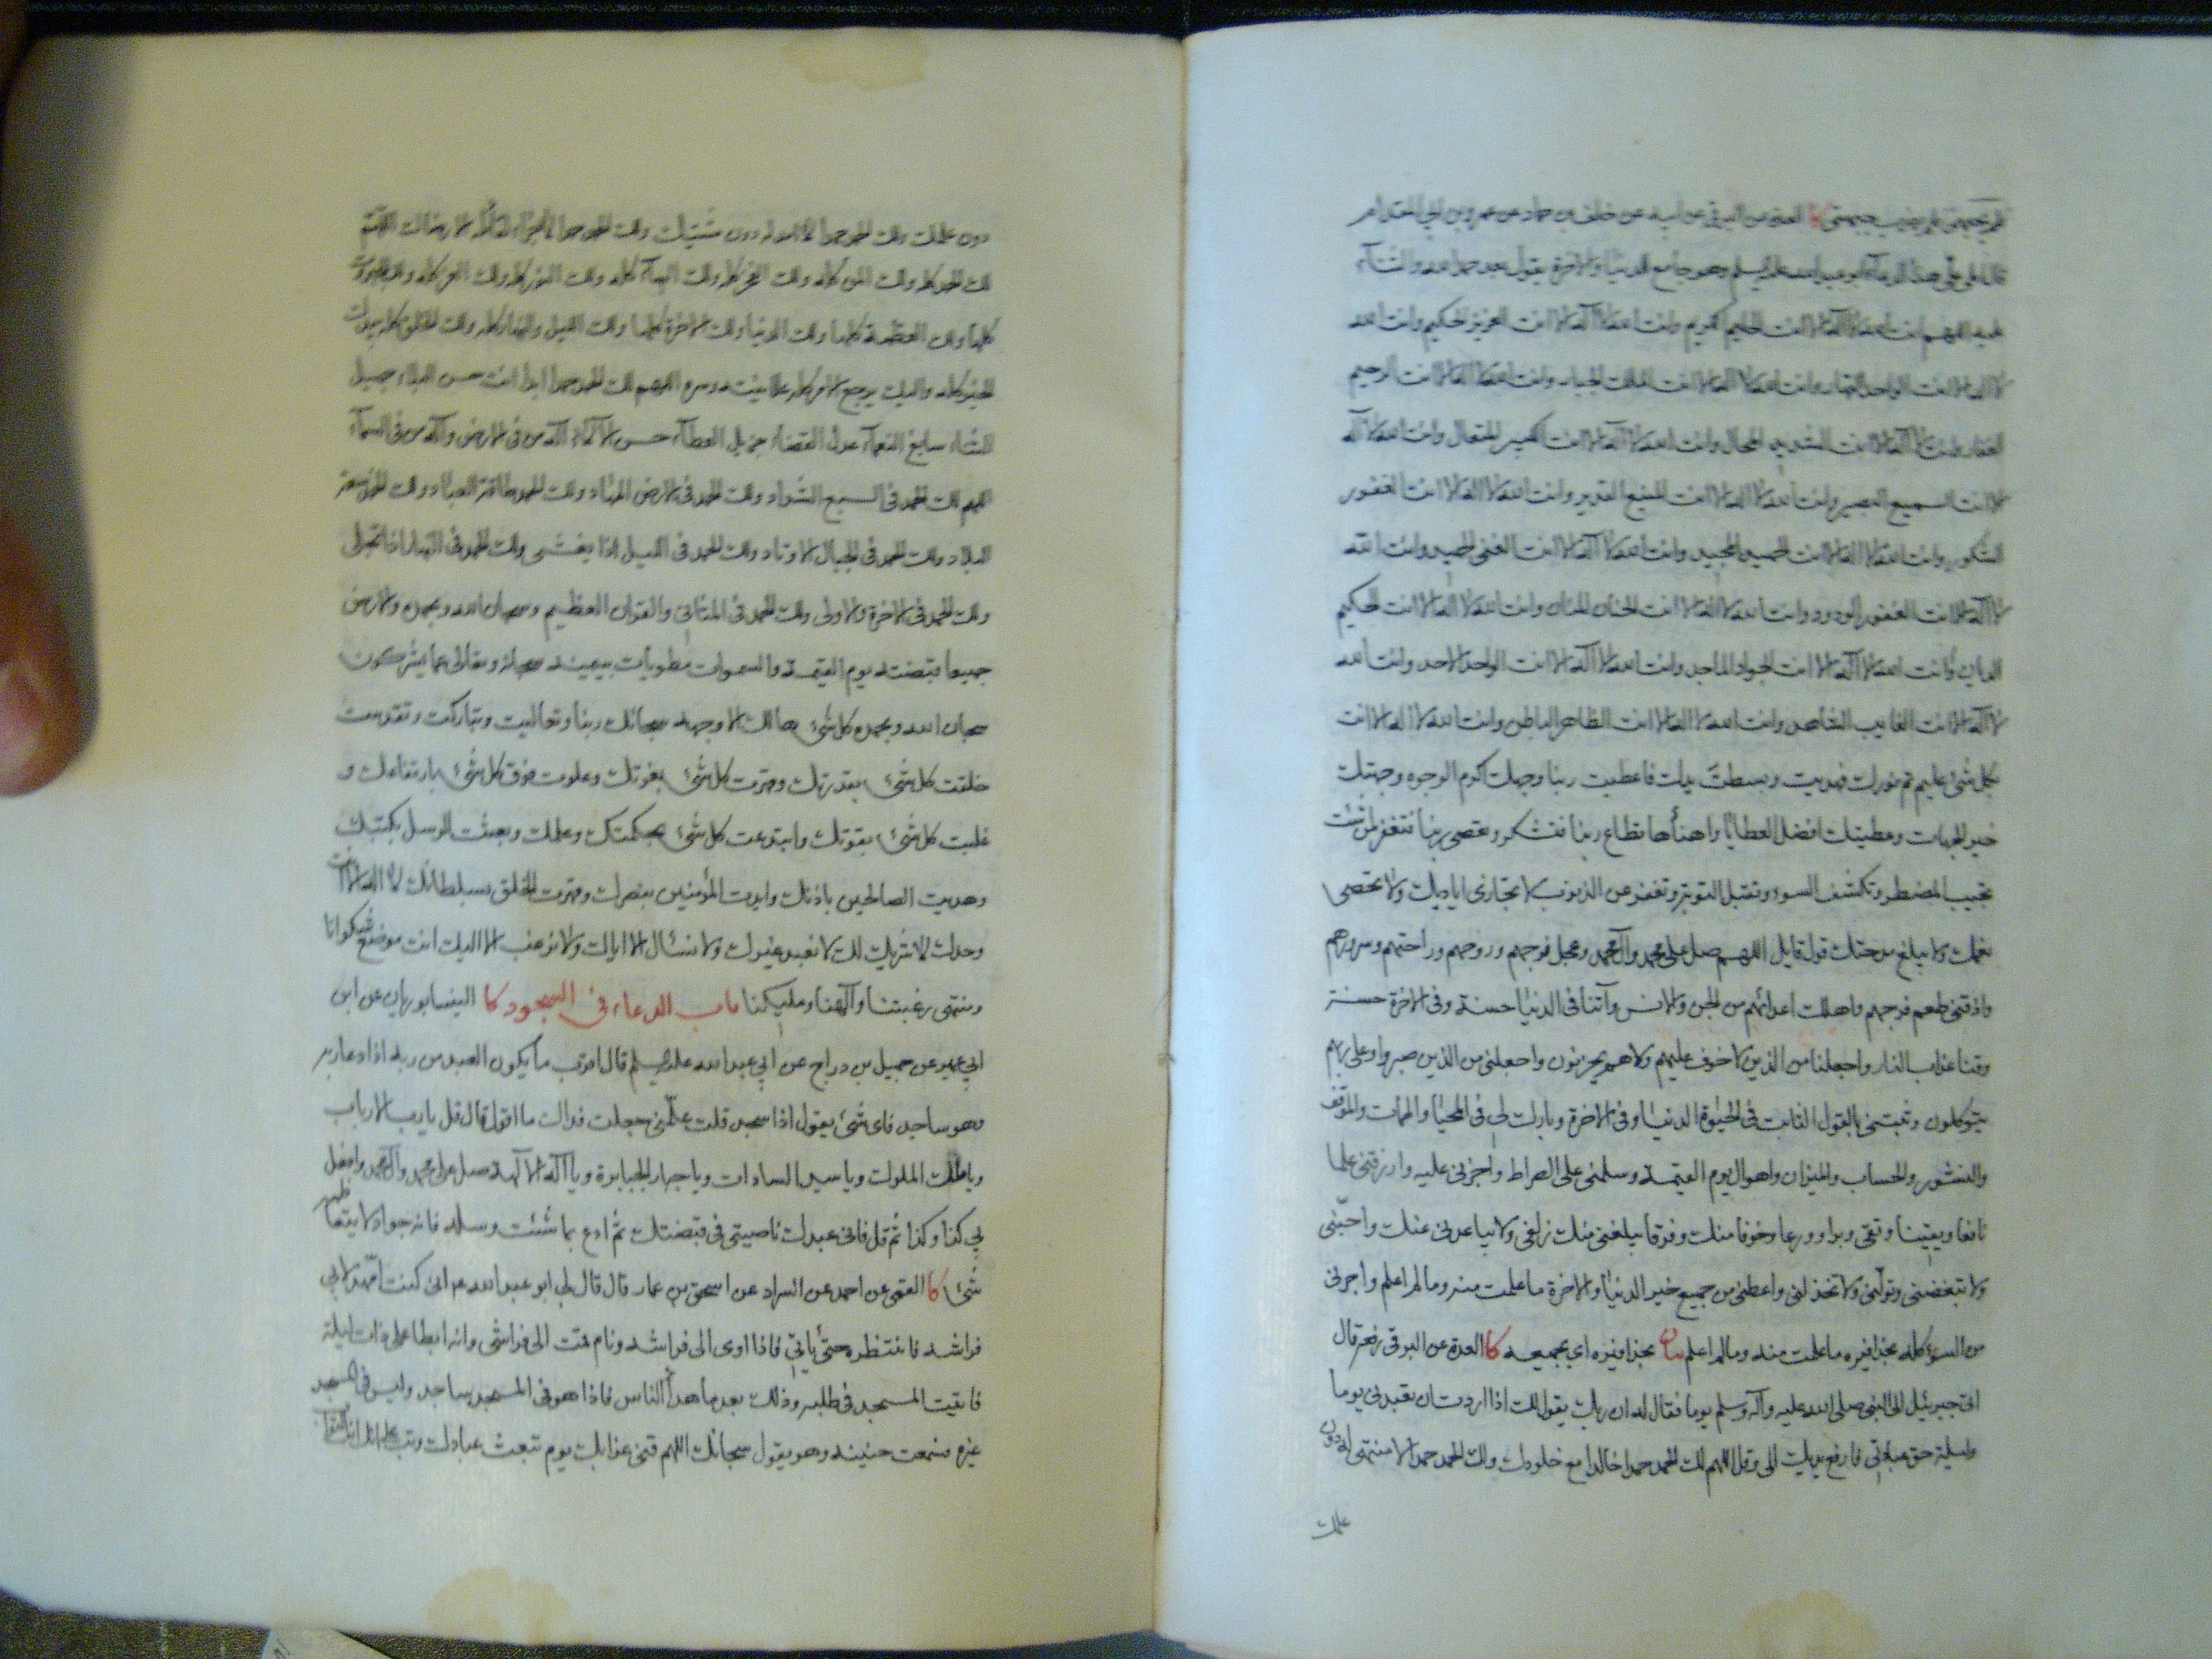 قال املى علي هذا الدعاء ابو عبد الله عليه السلم وهو جامع الدنيا والاخرة يقول بعد حمد الله والثناء
عليه اللهم انت الله لا اله الا انت الحليم الكريم وانت الله لا اله الا انت العزيز الحكيم وانت الله
لا اله الا انت الواحد القهار وانت الله لا اله الا انت الملك الجبار وانت الله لا اله الا انت الرحيم
الغفار وانت الله لا اله الا انت الشديد المحال وانت الله لا اله الا انت الكبير المتعال وانت الله لا اله
الا انت السميع البصير وانت الله لا اله الا انت المنيع القدير وانت الله لا اله الا انت الغفور
الشكور وانت الله لا اله الا انت الحميد المجيد وانت الله لا اله الا انت الغنى الحميد وانت الله
لا اله الا انت الغفور الودود وانت الله لا اله الا انت الحنان المنان وانت الله لا اله الا انت الحكيم
الديان وانت الله لا اله الا انت الجواد الماجد وانت الله لا اله الا انت الواحد الاحد وانت الله
لا اله الا انت الغايب الشاهد وانت الله لا اله الا انت الظاهر الباطن وانت الله لا اله الا انت
بكل شئ عليم تم نورك فهديت وبسطت يدك فاعطيت ربنا وجهك اكرم الوجوه وجهتك
خير الجهات وعطيتك افضل العطايا واهنأها تطاع ربنا فتشكر وتعصى ربنا فتغفر لمن شئت
تجيب المضطر وتكشف السوء وتقبل التوبة وتغفر عن الذنوب لا تجازى اياديك ولا تحصى
نعمك ولا يبلغ مدحتك قول قايل اللهم صل على محمد وآل محمد وعجل فرجهم وروحهم وراحتهم وسرورهم
واذقنى طعم فرجهم واهلك اعدائهم من الجن والانس وآتنا فى الدنيا حسنة وفى الاخرة حسنة
وقنا عذاب النار واجعلنا من الذين لا خوف عليهم ولا هم يحزنون واجعلنى من الذين صبروا وعلى ربهم
يتوكلون وثبتنى بالقول الثابت فى الحيوة الدنيا وفى الاخرة وبارك لى فى المحيا والممات والموقف
والنشور والحساب والميزان واهوال يوم القيمة وسلمنى على الصراط واجزنى عليه وارزقنى علما
نافعا ويقينا وتقى وبرا وورعا وخوفا منك وفرقا يبلغنى منك زلفى ولا يباعدنى عنك واحبنى
ولا تبغضنى وتولنى ولا تخذلنى واعطنى من جميع خير الدنيا والاخرة ما علمت منه وما لم اعلم واجرنى
من السوء كله بحذافيره ما علمت منه وما لم اعلم بيان بحذافيره اى بجميعه كا العدة عن البرقى رفعه قال
اتى جبرئيل الى النبى صلى الله عليه وآله وسلم يوما فقال له ان ربك يقول لك اذا اردت ان تعبدنى يوما
وليلة حق عبادتى فارفع يديك الى وقل اللهم لك الحمد حمدا خالدا مع خلودك ولك الحمد حمدا لا منتهى له دون
علمك
لك الحمد كله ولك المن كله ولك الفخر كله ولك البهاء كله ولك النور كله ولك العزة كلها ولك الجبروت
كلها ولك العظمة كلها ولك الدنيا كلها ولك الاخرة كلها ولك الليل والنهار كله ولك الخلق كله بيدك
الخير كله واليك يرجع الامر كله علانيته وسره اللهم لك الحمد حمدا ابدا انت حسن البلاء جميل
الثناء سابغ النعماء عدل القضاء جزيل العطاء حسن الالاء اله من فى الارض واله من فى السماء
اللهم لك الحمد فى السبع الشداد ولك الحمد فى الارض المهاد ولك الحمد طاقة العباد ولك الحمد سعة
البلاد ولك الحمد فى الجبال الاوتاد ولك الحمد فى الليل اذا يغشى ولك الحمد فى النهار اذا تجلى
ولك الحمد فى الاخرة والاولى ولك الحمد فى المثانى والقرآن العظيم وسبحان الله وبحمده والارض
جميعا قبضته يوم القيمة والسموات مطويات بيمينه سبحانه وتعالى عما يشركون
سبحان الله وبحمده كل شئ هالك الا وجهه سبحانك ربنا وتعاليت وتباركت وتقدست
خلقت كل شئ بقدرتك وقهرت كل شئ بعزتك وعلوت فوق كل شئ بارتفاعك و
غلبت كل شئ بقوتك وابتدعت كل شئ بحكمتك وعلمك وبعثت الرسل بكتبك
وهديت الصالحين باذنك وايدت المؤمنين بنصرك وقهرت الخلق بسلطانك لا اله الا انت
وحدك لا شريك لك لا نعبد غيرك ولا نسأل الا اياك ولا نرغب الا اليك انت موضع شكوانا
ومنتهى رغبتنا وآلهنا ومليكنا باب الدعاء فى السجود كا النيسابوريان عن ابن
ابي عمير عن جميل بن دراج عن ابي عبد الله عليه السلم قال اقرب ما يكون العبد من ربه اذا دعا ربه
وهو ساجد فاى شئ يقول اذا سجد قلت علمنى جعلت فداك ما اقول قال قل يا رب الارباب
ويا ملك الملوك ويا سيد السادات ويا جبار الجبابرة ويا اله الآلهة صل على محمد وآل محمد وافعل
بي كذا وكذا ثم قل فانى عبدك ناصيتى فى قبضتك ثم ادع بما شئت وسله فانه جواد لا يتعاظمه
شئ كا القمى عن احمد عن السراد عن اسحق بن عمار قال قال لى ابو عبد الله ع انى كنت امهد لابى
فراشه فانتظره حتى ياتى فاذا اوى الى فراشه ونام قمت الى فراشى وانه ابطأ على ذات ليلة
فاتيت المسجد فى طلبه وذلك بعد ما هدأ الناس فاذا هو فى المسجد ساجد وليس فى المسجد
غيره فسمعت حنينه وهو يقول سبحانك اللهم قنى عذابك يوم تبعث عبادك وتب على انك انت التواب